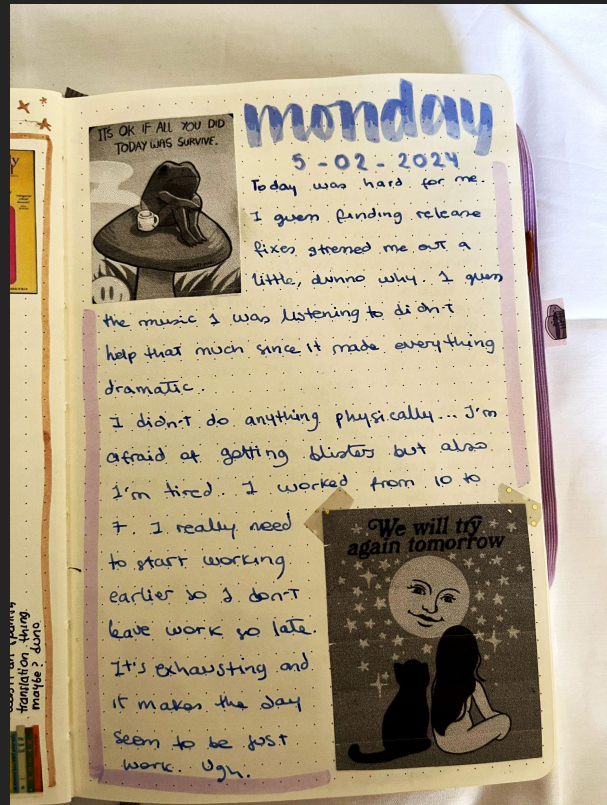 IT'S OK IF ALL YOU DID
TODAY WAS SURVIVE.
monday
5-02-2024
Today was hard for me.
I guess finding release
fixes stressed me out a
little, dunno why. I guess
the music I was listening to didn't
help that much since it made everything
dramatic.
I didn't do anything physically... I'm
afraid of getting blisters but also
I'm tired. I worked from 10 to
7. I really need
to start working
earlier so I don't
leave work so late.
It's exhausting and
it makes the day
seem to be just
work. Ugh.
We will try
again tomorrow
translation thing.
maybe? duno